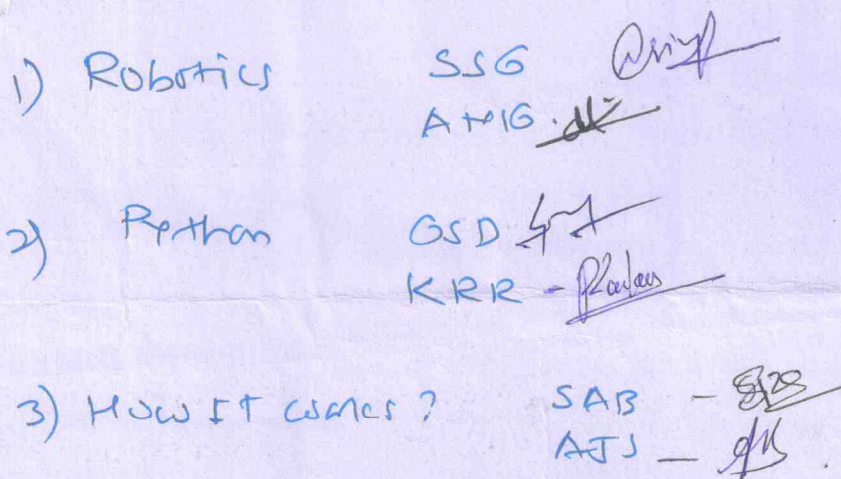 1) Robotics SSG
AHIG.
2) Python GSD
KRR -
3) How It works? SAB -
AJS -